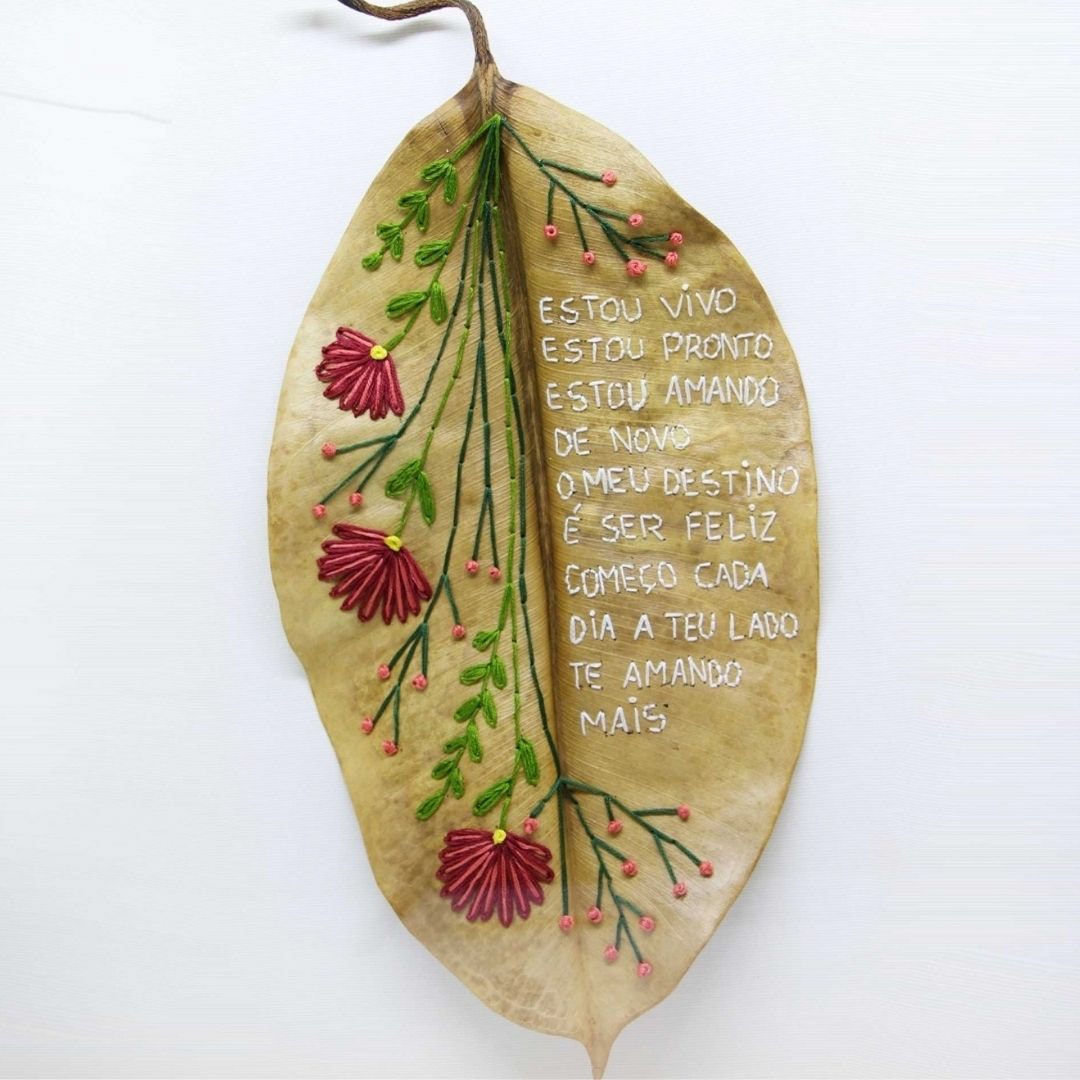 ESTOU ViVO
ESTOU PRONTO
ESTOU AMANDO
DE NOVO
O MEU DESTiNO
É SER FELiZ
COMEÇO CADA
DiA A TEU LADO
TE AMANDO
MAiS